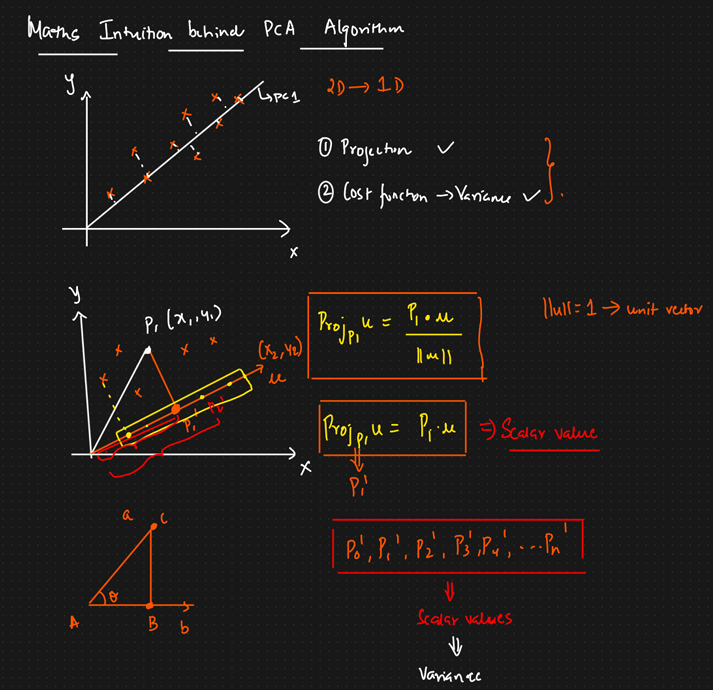 Maths Intuition behind PCA Algorithm
y
PC1
2D → 1D
① Projection ✓
② Cost function → Variance ✓
x
y
P₁ (x₁, y₁)
(x₂, y₂)
u
P₁'
x
Proj_P₁ u = P₁ • u / ||u||
||u|| = 1 → unit vector
Proj_P₁ u = P₁ • u ⇒ Scalar value
P₁'
a C
θ
A B b
P₀', P₁', P₂', P₃', P₄', .... Pn'
Scalar values
Variance